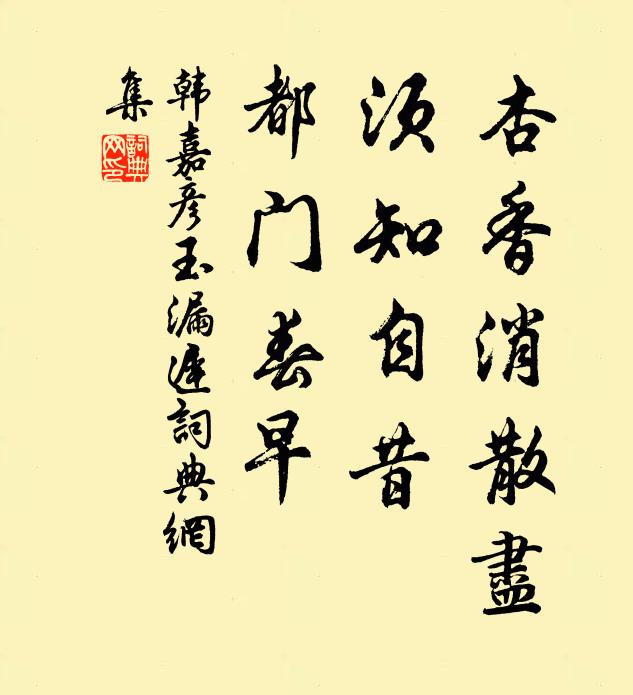 杏香消散盡
須知自昔
都门春早
韩嘉彦玉漏遲詞典網
集
詞典
网印